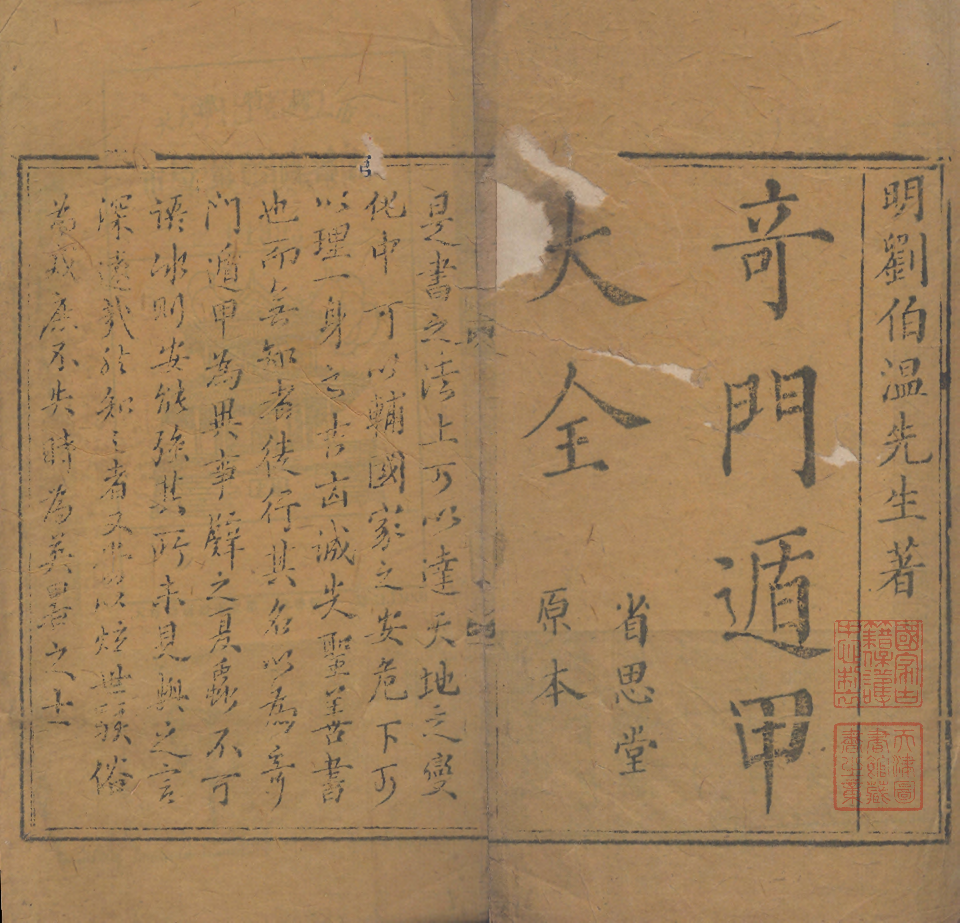 明劉伯温先生著
奇門遁甲
大全
省思堂
原本
是書之法上可以達天地之變
化中可以輔國家之安危下可
以理一身之吉凶誠失聖至善書
也而無知者徒行其名以為奇
門遁甲為異事譬之夏蟲不可
語冰則安能強其所未見與之言
深遠哉於知之者又
以炫世駭俗
為戒庶不失時為英君之士
國家古籍保護
天津圖書館藏書之章